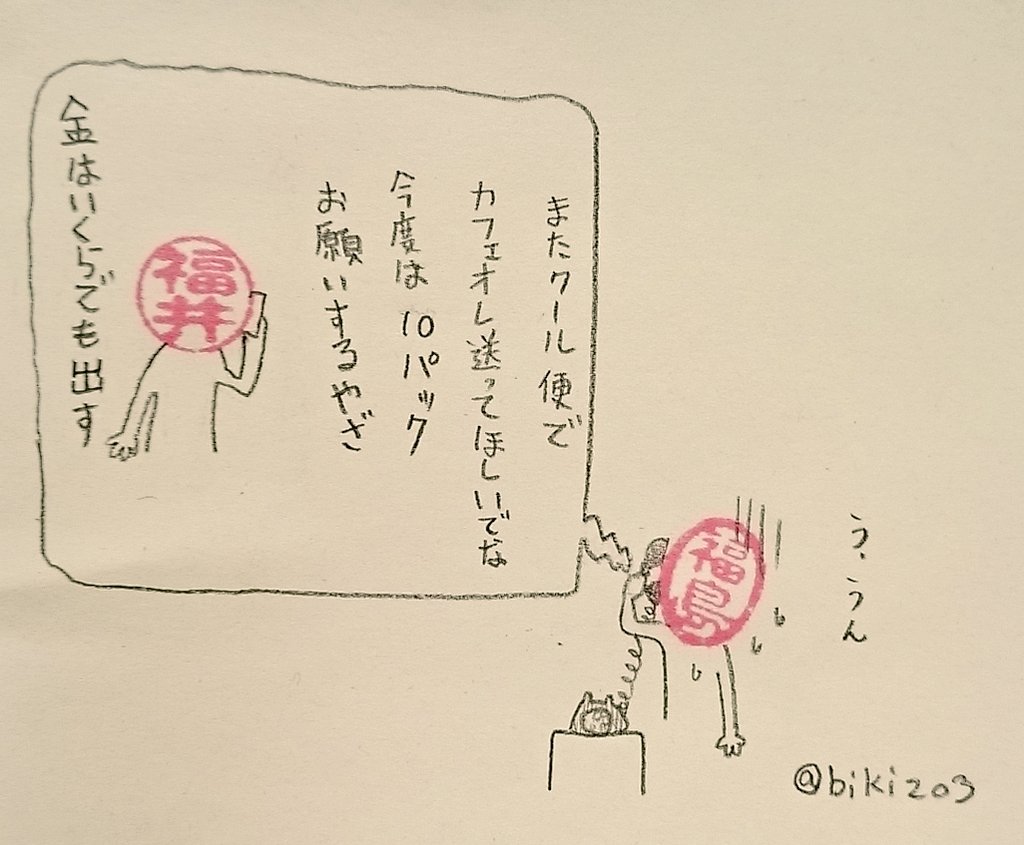 またクール便で
カフェオレ送ってほしいでな
今度は10パック
お願いするやざ
福井
金はいくらでも出す
う、うん
福島
@bikizo3